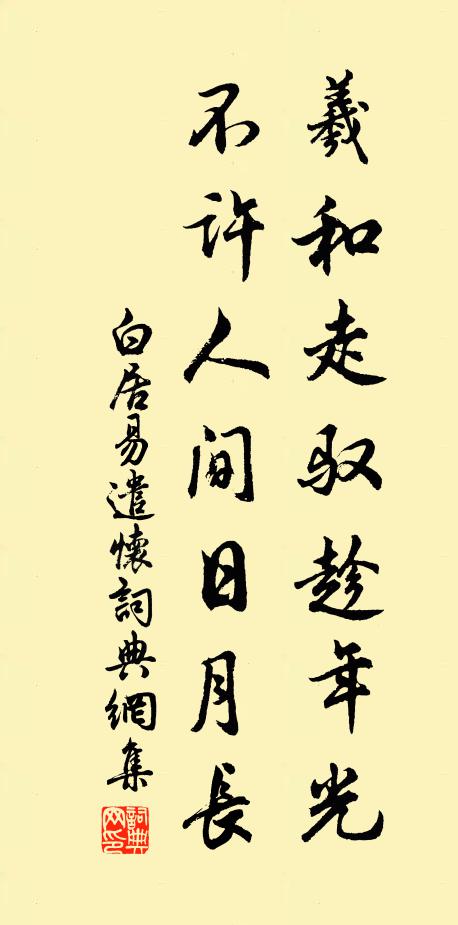 羲和走驭趁年光
不许人间日月長
白居易遣懷詞典網集
詞典网印